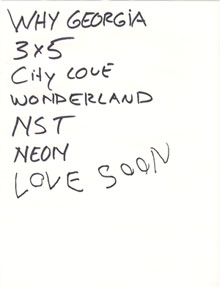 WHY GEORGIA
3x5
City LOVE
WONDERLAND
NST
NEON
LOVE SOON